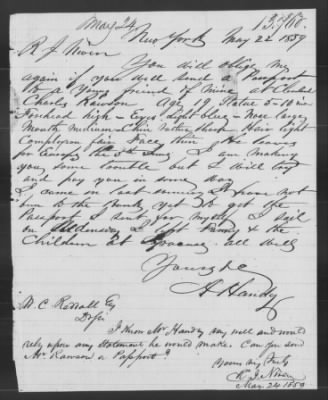 May 24
13,760.
New York May 22 1859
R J Niven
You will oblige me
again if you will send a Passport
to a Young friend of mine
Charles Rawson Age 19 Statue 5-10 in
Forehead high - Eyes light blue - Nose large
Mouth medium Chin rather sharp Hair light
Complexion fair Face thin He leaves
for Europe the I am making
you some trouble but I will try
and pay you in some way
I came on last evening I have not
been to the yet to get the
Passport I sent for myself I sail
on Wednesday I left Fanny & the
Children at All well
Yours &c
A Handy
W. C. Reddall Esq
Dr Sir
I know Mr Handy very well and would
rely upon any statement he would make. Can you send
Mr. Rawson a Passport?
Yours very truly
R J Niven
May 24 1859